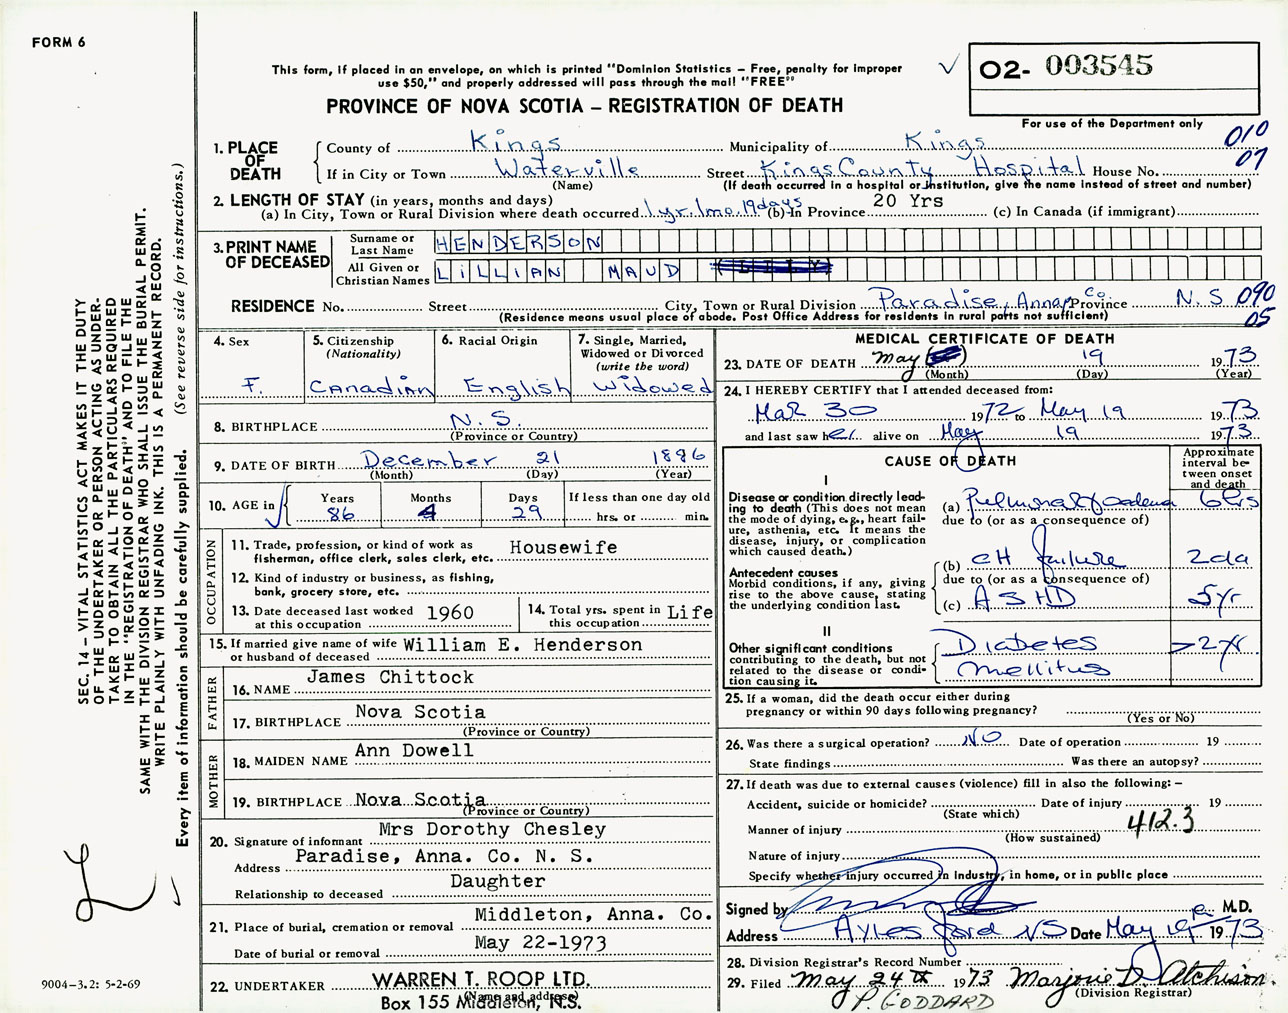 FORM 6
This form, if placed in an envelope, on which is printed "Dominion Statistics – Free, penalty for improper
use $50," and properly addressed will pass through the mail "FREE"
✓ O2- 003545
PROVINCE OF NOVA SCOTIA – REGISTRATION OF DEATH
For use of the Department only
010
07
1. PLACE OF DEATH
County of Kings Municipality of Kings
If in City or Town Waterville Street Kings County Hospital House No.
(Name) (If death occurred in a hospital or Institution, give the name instead of street and number)
2. LENGTH OF STAY (in years, months and days)
(a) In City, Town or Rural Division where death occurred 1 yr. 1 mo. 19 days (b) In Province 20 Yrs (c) In Canada (if immigrant)
3. PRINT NAME OF DECEASED
Surname or Last Name HENDERSON
All Given or Christian Names LILLIAN MAUD
RESIDENCE No. Street City, Town or Rural Division Paradise, Anna. Co. Province N.S 090
(Residence means usual place of abode. Post Office Address for residents in rural parts not sufficient) 05
4. Sex
F.
5. Citizenship
(Nationality)
Canadian
6. Racial Origin
English
7. Single, Married,
Widowed or Divorced
(write the word)
Widowed
8. BIRTHPLACE N.S.
(Province or Country)
9. DATE OF BIRTH December 21 1886
(Month) (Day) (Year)
10. AGE in
Years Months Days If less than one day old
86 4 29 hrs. or min.
OCCUPATION
11. Trade, profession, or kind of work as
fisherman, office clerk, sales clerk, etc. Housewife
12. Kind of industry or business, as fishing,
bank, grocery store, etc.
13. Date deceased last worked
at this occupation 1960
14. Total yrs. spent in
this occupation Life
15. If married give name of wife
or husband of deceased William E. Henderson
FATHER
16. NAME James Chittock
17. BIRTHPLACE Nova Scotia
(Province or Country)
MOTHER
18. MAIDEN NAME Ann Dowell
19. BIRTHPLACE Nova Scotia
(Province or Country)
20. Signature of informant Mrs Dorothy Chesley
Address Paradise, Anna. Co. N. S.
Relationship to deceased Daughter
21. Place of burial, cremation or removal Middleton, Anna. Co.
Date of burial or removal May 22-1973
22. UNDERTAKER WARREN T. ROOP LTD.
(Name and address)
Box 155 Middleton, N.S.
MEDICAL CERTIFICATE OF DEATH
23. DATE OF DEATH May 19 1973
(Month) (Day) (Year)
24. I HEREBY CERTIFY that I attended deceased from:
Mar 30 1972 to May 19 1973
and last saw her alive on May 19 1973
CAUSE OF DEATH
Approximate
interval be-
tween onset
and death
I
Disease or condition directly lead-
ing to death (This does not mean
the mode of dying, e.g., heart fail-
ure, asthenia, etc. It means the
disease, injury, or complication
which caused death.)
(a) Pulmonary oedema 6 hrs
due to (or as a consequence of)
Antecedent causes
Morbid conditions, if any, giving
rise to the above cause, stating
the underlying condition last.
(b) CH failure 2 da
due to (or as a consequence of)
(c) ASHD 5 yr
II
Other significant conditions
contributing to the death, but not
related to the disease or condi-
tion causing it.
Diabetes >2 yr
mellitus
25. If a woman, did the death occur either during
pregnancy or within 90 days following pregnancy?
(Yes or No)
26. Was there a surgical operation? No Date of operation 19
State findings Was there an autopsy?
27. If death was due to external causes (violence) fill in also the following: –
Accident, suicide or homicide? Date of injury 19
(State which)
Manner of injury 412.3
(How sustained)
Nature of injury
Specify whether injury occurred in Industry, in home, or in public place
Signed by M.D.
Address Aylesford NS Date May 19 1973
28. Division Registrar's Record Number
29. Filed May 24th 1973 Marjorie D. Atchison.
(Division Registrar)
P. GODDARD
SEC. 14 – VITAL STATISTICS ACT MAKES IT THE DUTY
OF THE UNDERTAKER OR PERSON ACTING AS UNDER-
TAKER TO OBTAIN ALL THE PARTICULARS REQUIRED
IN THE "REGISTRATION OF DEATH" AND TO FILE THE
SAME WITH THE DIVISION REGISTRAR WHO SHALL ISSUE THE BURIAL PERMIT.
WRITE PLAINLY WITH UNFADING INK. THIS IS A PERMANENT RECORD.
Every item of information should be carefully supplied. (See reverse side for instructions.)
9004-3.2: 5-2-69